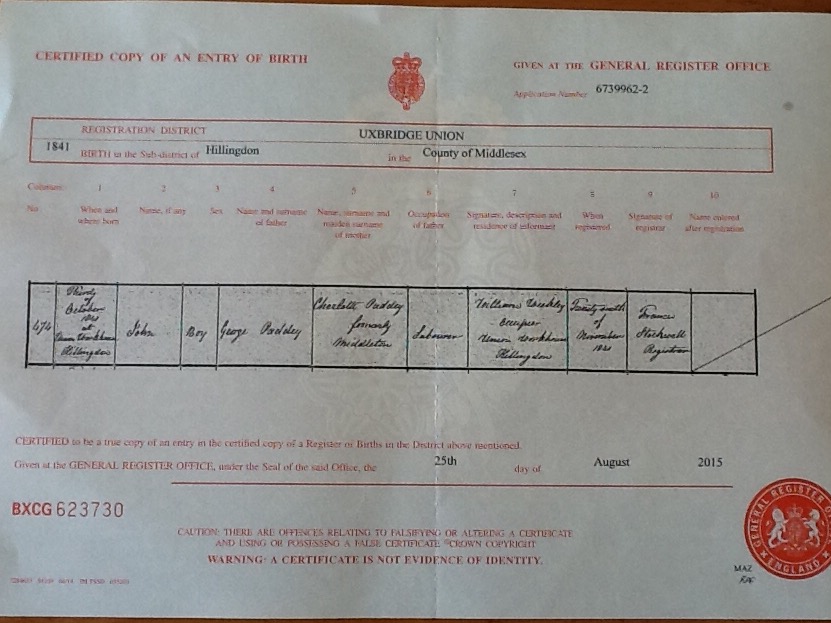 CERTIFIED COPY OF AN ENTRY OF BIRTH
GIVEN AT THE GENERAL REGISTER OFFICE
Application Number 6739962-2
REGISTRATION DISTRICT UXBRIDGE UNION
1841 BIRTH in the Sub-district of Hillingdon in the County of Middlesex
Columns:- 1 2 3 4 5 6 7 8 9 10
No. When and where born Name, if any Sex Name and surname of father Name, surname and maiden surname of mother Occupation of father Signature, description and residence of informant When registered Signature of registrar Name entered after registration
474
October
1841
at
Union Workhouse
Hillingdon
John
Boy
George Paddey
Charlotte Paddey
formerly
Middleton
Labourer
William Weekley
Occupier
Union Workhouse
Hillingdon
of
November
1841
Stockwell
Registrar
CERTIFIED to be a true copy of an entry in the certified copy of a Register of Births in the District above mentioned.
Given at the GENERAL REGISTER OFFICE, under the Seal of the said Office, the 25th day of August 2015
BXCG 623730
CAUTION: THERE ARE OFFENCES RELATING TO FALSIFYING OR ALTERING A CERTIFICATE
AND USING OR POSSESSING A FALSE CERTIFICATE ©CROWN COPYRIGHT
WARNING: A CERTIFICATE IS NOT EVIDENCE OF IDENTITY.
GENERAL REGISTER OFFICE
ENGLAND
MAZ